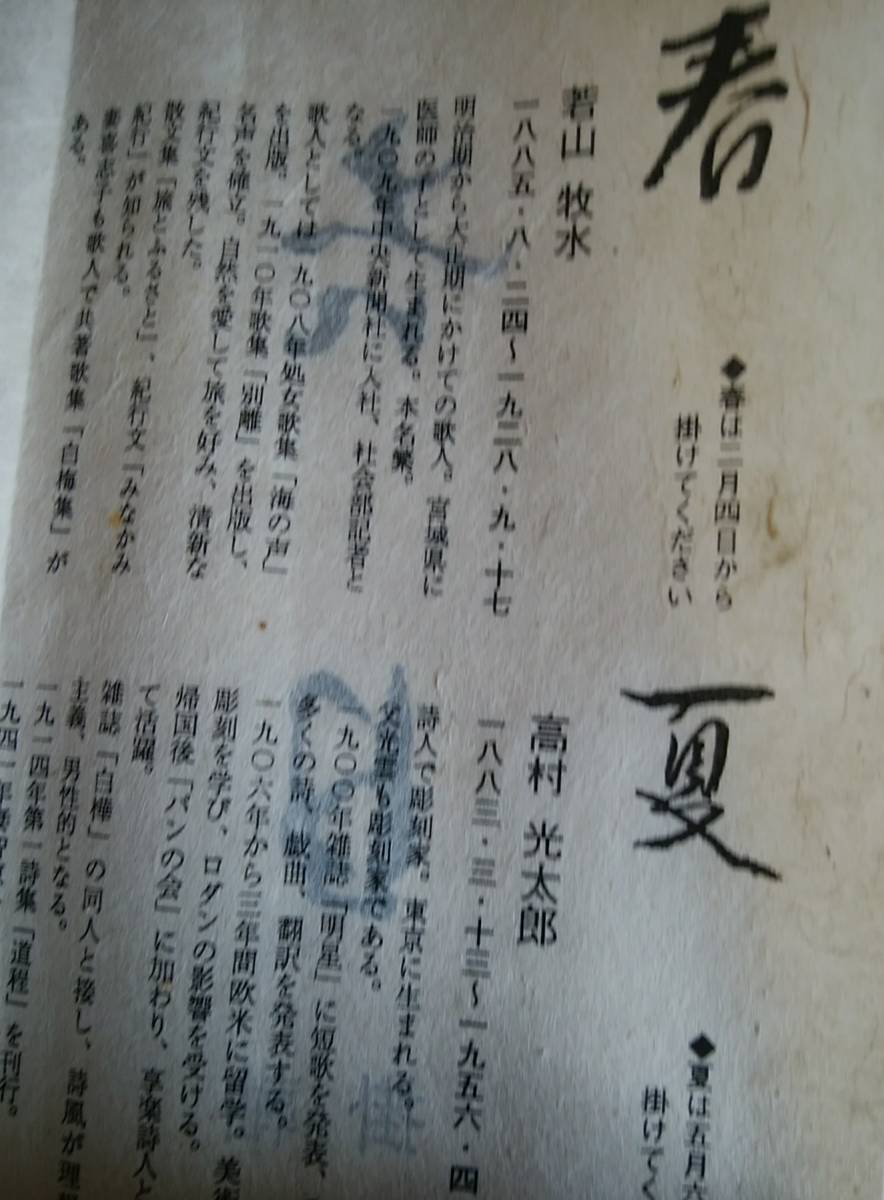 春
◆春は二月四日から
掛けてください
若山 牧水
一八八五・八・二四～一九二八・九・十七
明治期から大正期にかけての歌人。宮城県に
医師の子として生まれる。本名繁。
一九〇九年中央新聞社に入社、社会部記者と
なる。
歌人としては一九〇八年処女歌集「海の声」
を出版。一九一〇年歌集「別離」を出版し、
名声を確立。自然を愛して旅を好み、清新な
紀行文を残した。
散文集「旅とふるさと」、紀行文「みなかみ
紀行」が知られる。
妻喜志子も歌人で共著歌集「白梅集」が
ある。
夏
◆夏は五月六
掛けてく
高村 光太郎
一八八三・三・十三～一九五六・四
詩人で彫刻家。東京に生まれる。
父光雲も彫刻家である。
一九〇〇年雑誌「明星」に短歌を発表、
多くの詩、戯曲、翻訳を発表する。
一九〇六年から三年間欧米に留学。美術
彫刻を学び、ロダンの影響を受ける。
帰国後「パンの会」に加わり、享楽詩人と
て活躍。
雑誌「白樺」の同人と接し、詩風が理
主義、男性的となる。
一九一四年第一詩集「道程」を刊行。
一九四一年